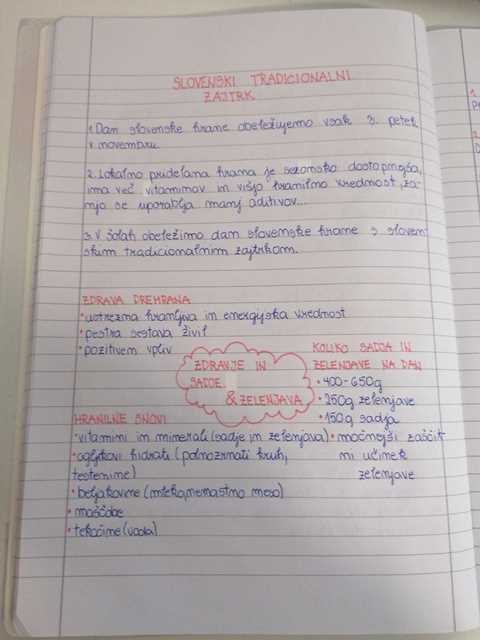 SLOVENSKI TRADICIONALNI
ZAJTRK
1. Dan slovenske hrane obeležujemo vsak 3. petek
v novembru.
2. Lokalno pridelana hrana je sezonsko dostopnejša,
ima več vitaminov in višjo hranilno vrednost, za-
njo se uporablja manj aditivov...
3. V šolah obeležimo dan slovenske hrane s sloven
skim tradicionalnim zajtrkom.
ZDRAVA PREHRANA
• ustrezna hranljiva in energijska vrednost
• pestra sestava živil
• pozitiven vpliv
ZDRAVJE IN
SADJE
& ZELENJAVA
KOLIKO SADJA IN
ZELENJAVE NA DAN
• 400-650g
• 250g zelenjave
• 150g sadja
• močnejši zaščit
ni učinek
zelenjave
HRANILNE SNOVI
• vitamini in minerali (sadje in zelenjava)
• ogljikovi hidrati (polnozrnati kruh,
testenine)
• beljakovine (mleko, nemastno meso)
• maščobe
• tekočine (voda)